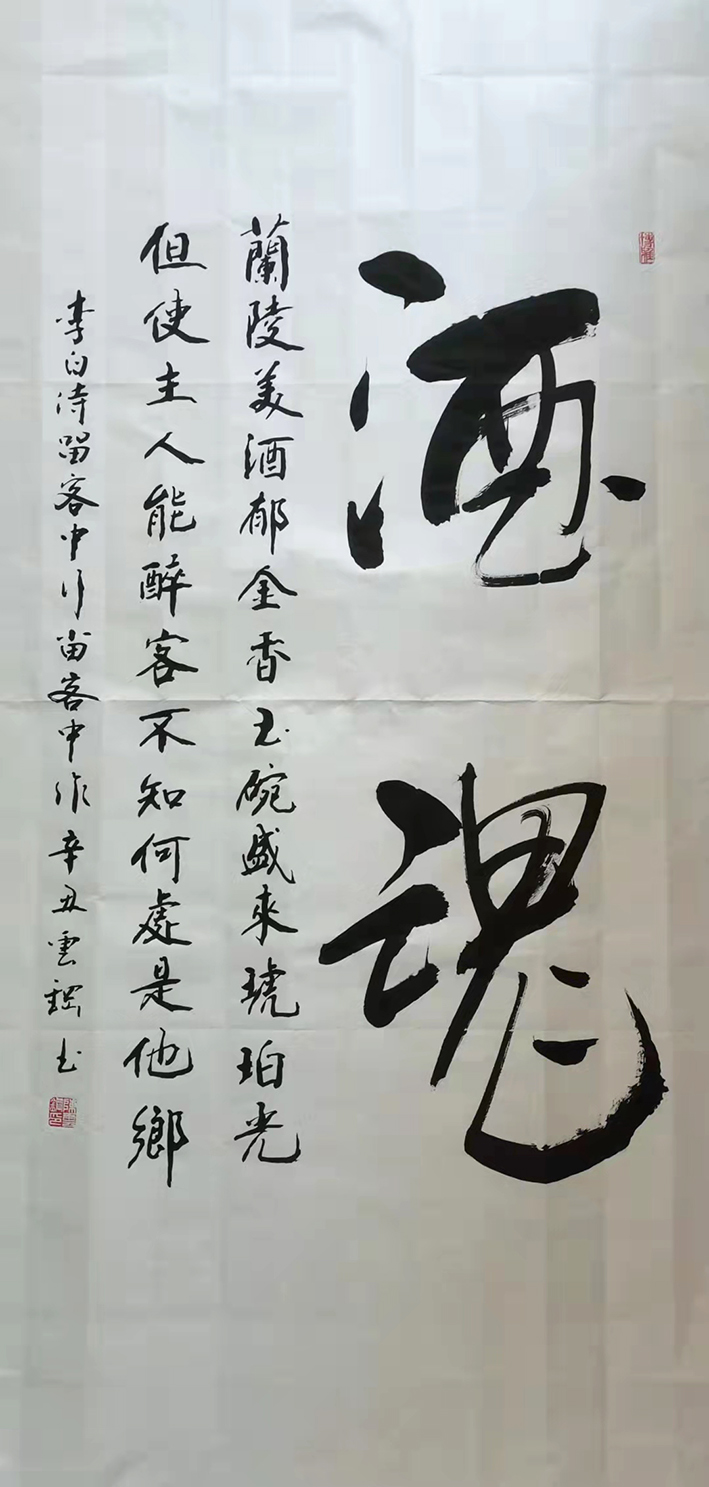 酒魂
蘭陵美酒郁金香玉碗盛来琥珀光
但使主人能醉客不知何處是他鄉
李白诗留客中行留客中作辛丑雲鋼书